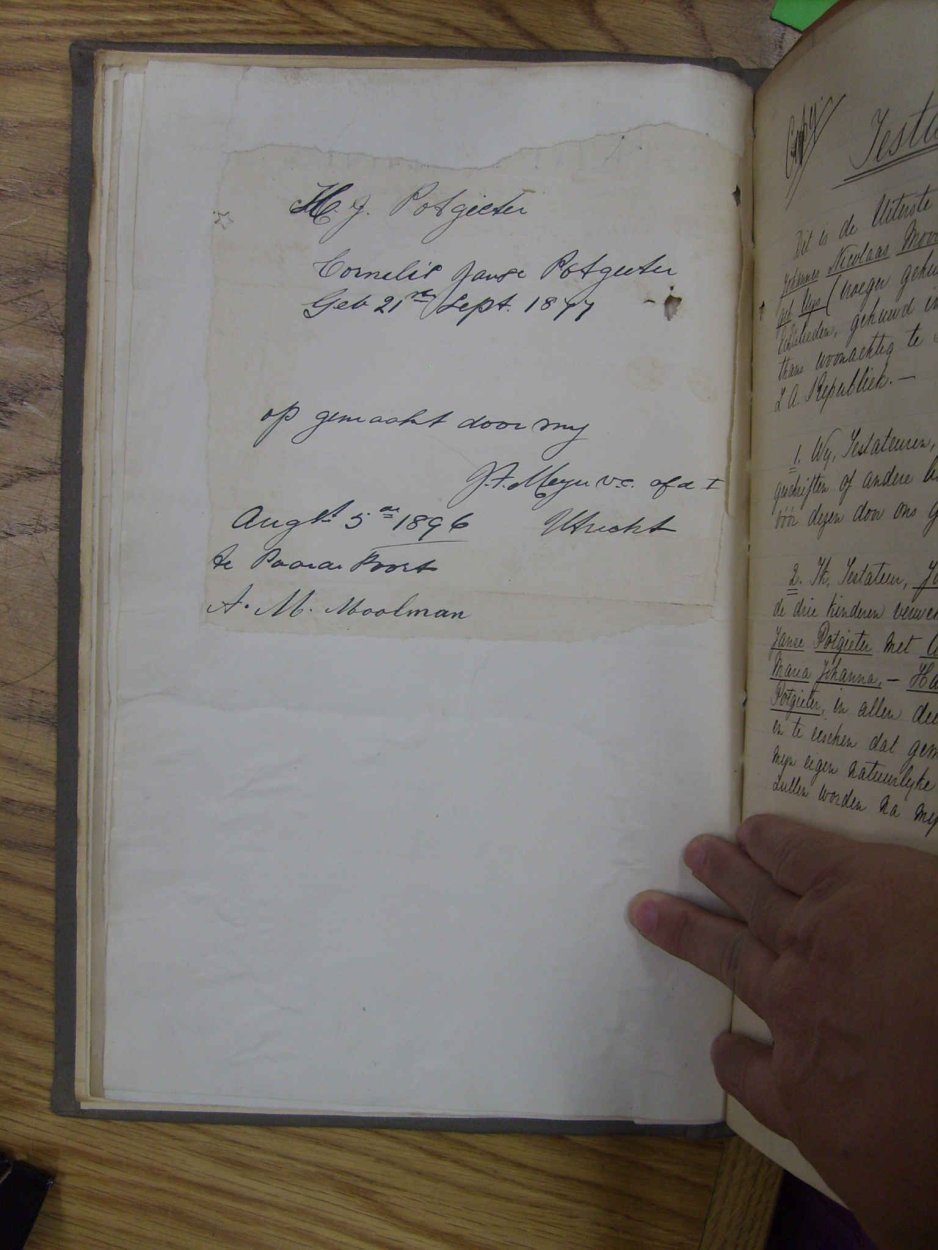 H. J. Potgieter
Cornelis Janse Potgieter
Geb 21ste Sept. 1877
op gemaakt door my
J. F. Meyer v.c. of d I
Augst 5de 1896 Utrecht
te Paarde Poort
A. M. Moolman
Copy
Testa
Dit is de Uiterste
Johannes Nicolaas Moo
geb Uys (vroeger gehu
Echtelieden, gehuwd in
thans woonachtig te
Z. A. Republiek. —
1. Wy, Testateuren,
geschriften of andere
vóór dezen door ons g
2. Ik, Testateur, Jo
de drie kinderen verwe
Janse Potgieter met
Maria Johanna, — Ha
Potgieter, in allen dee
en te eischen dat gem
myn eigen natuurlyke
zullen worden na my